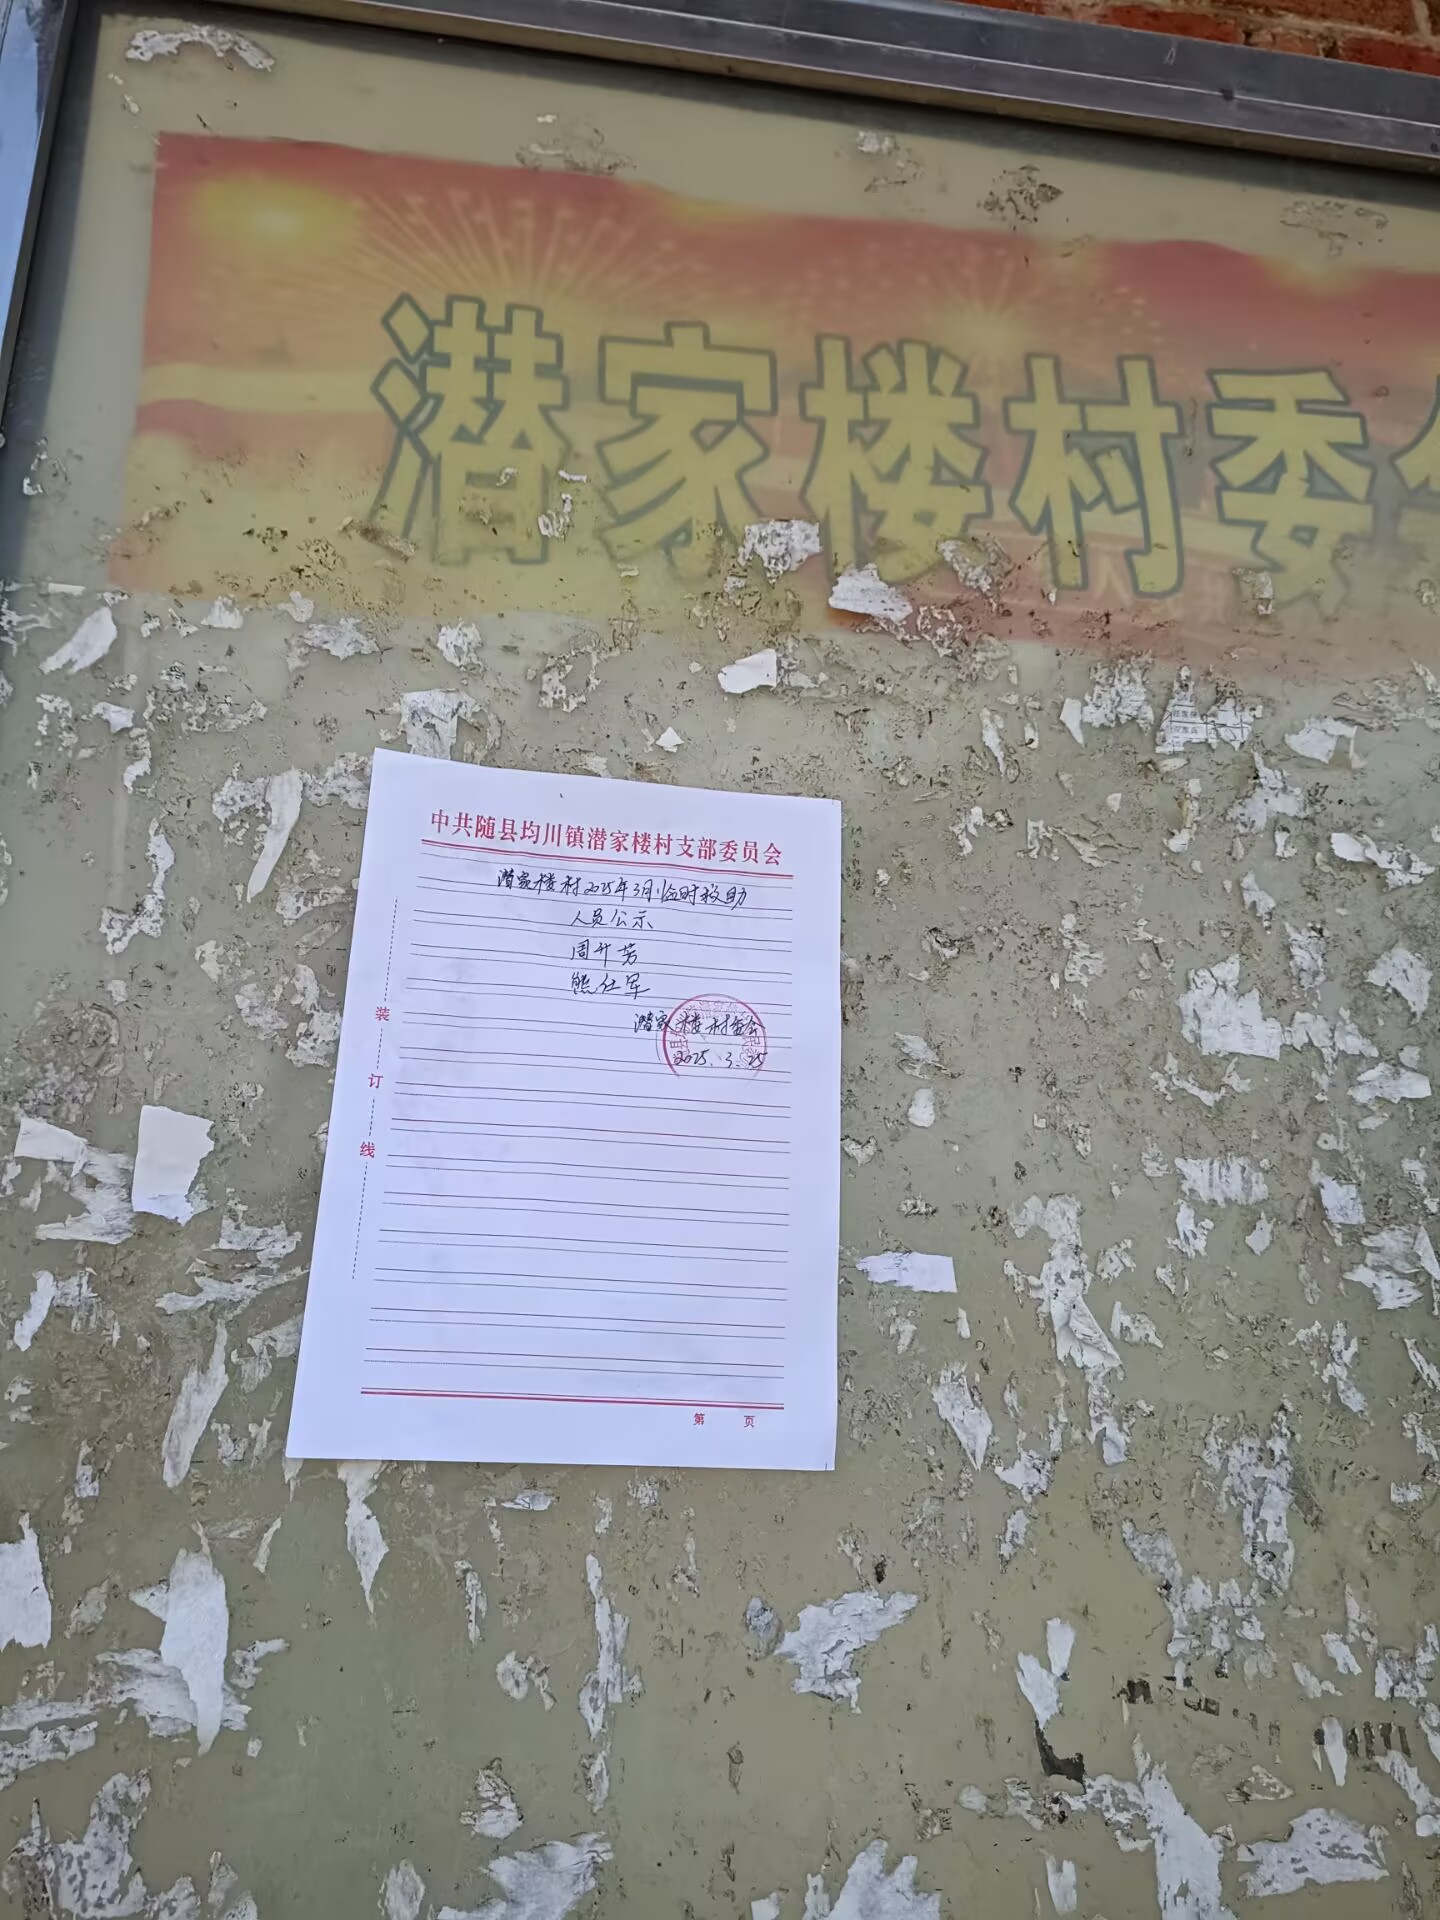 潜家楼村委
中共随县均川镇潜家楼村支部委员会
潜家楼村2025年3月临时救助
人员公示
周开芳
熊仕军
潜家楼村委会
2025.3.25
装
订
线
第 页